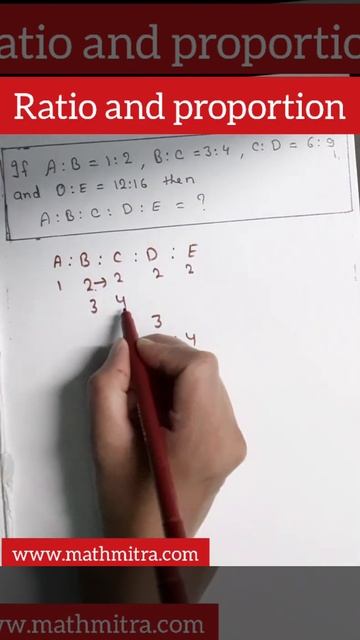 atio and proportio
Ratio and proportion
If A:B = 1:2, B:C = 3:4, C:D = 6:9
and D:E = 12:16 then
A:B:C:D:E = ?
A : B : C : D : E
1 2→ 2 2 2
3 4
3
4
www.mathmitra.com
ww.mathmitra.com